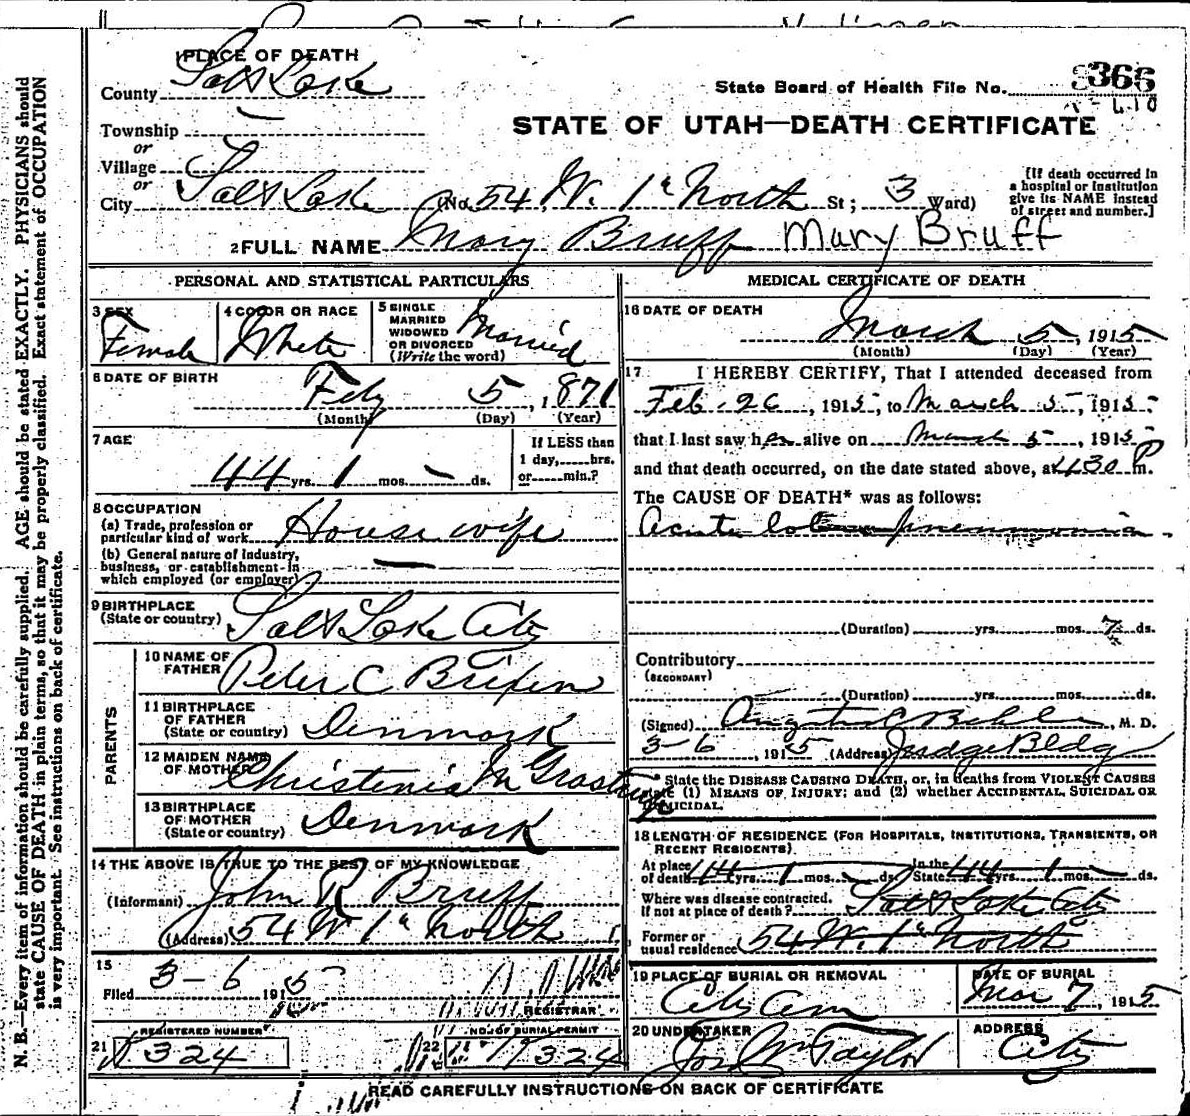 PLACE OF DEATH
County Salt Lake
State Board of Health File No. 366
Township
or
STATE OF UTAH—DEATH CERTIFICATE
Village
or
City Salt Lake (No. 54 W. 1st North St; 3 Ward)
[If death occurred in
a hospital or institution
give its NAME instead
of street and number.]
2 FULL NAME Mary Bruff Mary Bruff
PERSONAL AND STATISTICAL PARTICULARS
3 SEX
Female
4 COLOR OR RACE
White
5 SINGLE
MARRIED
WIDOWED
OR DIVORCED
(Write the word)
Married
6 DATE OF BIRTH
Feby 5, 1871
(Month) (Day) (Year)
7 AGE
44 yrs. 1 mos. — ds.
If LESS than
1 day,......hrs.
or......min.?
8 OCCUPATION
(a) Trade, profession or
particular kind of work Housewife
(b) General nature of industry,
business, or establishment in
which employed (or employer) —
9 BIRTHPLACE
(State or country) Salt Lake City
PARENTS
10 NAME OF
FATHER Peter C
11 BIRTHPLACE
OF FATHER
(State or country) Denmark
12 MAIDEN NAME
OF MOTHER Christenia M
13 BIRTHPLACE
OF MOTHER
(State or country) Denmark
14 THE ABOVE IS TRUE TO THE BEST OF MY KNOWLEDGE
(Informant) John R Bruff
(Address) 54 W 1st North
15
Filed 3-6 1915
REGISTRAR
REGISTERED NUMBER
21 324
NO. OF BURIAL PERMIT
22 324
MEDICAL CERTIFICATE OF DEATH
16 DATE OF DEATH
March 5, 1915
(Month) (Day) (Year)
17 I HEREBY CERTIFY, That I attended deceased from
Feb. 26, 1915, to March 5, 1915
that I last saw her alive on March 5, 1915
and that death occurred, on the date stated above, at 430 P m.
The CAUSE OF DEATH* was as follows:
Acute lobar pneumonia
(Duration) yrs. mos. 7 ds.
Contributory
(SECONDARY)
(Duration) yrs. mos. ds.
(Signed) M. D.
3-6, 1915 (Address) Judge Bldg
* State the DISEASE CAUSING DEATH, or, in deaths from VIOLENT CAUSES
state (1) MEANS OF INJURY; and (2) whether ACCIDENTAL, SUICIDAL OR
HOMICIDAL.
18 LENGTH OF RESIDENCE (FOR HOSPITALS, INSTITUTIONS, TRANSIENTS, OR
RECENT RESIDENTS).
At place
of death 44 yrs. 1 mos. ds. In the State 44 yrs. 1 mos. — ds.
Where was disease contracted,
if not at place of death? Salt Lake City
Former or
usual residence 54 W. 1st North
19 PLACE OF BURIAL OR REMOVAL
City Cem
DATE OF BURIAL
Mar 7, 1915
20 UNDERTAKER
Jos Wm Taylor
ADDRESS
City
READ CAREFULLY INSTRUCTIONS ON BACK OF CERTIFICATE
N. B.—Every item of information should be carefully supplied. AGE should be stated EXACTLY. PHYSICIANS should
state CAUSE OF DEATH in plain terms, so that it may be properly classified. Exact statement of OCCUPATION
is very important. See instructions on back of certificate.